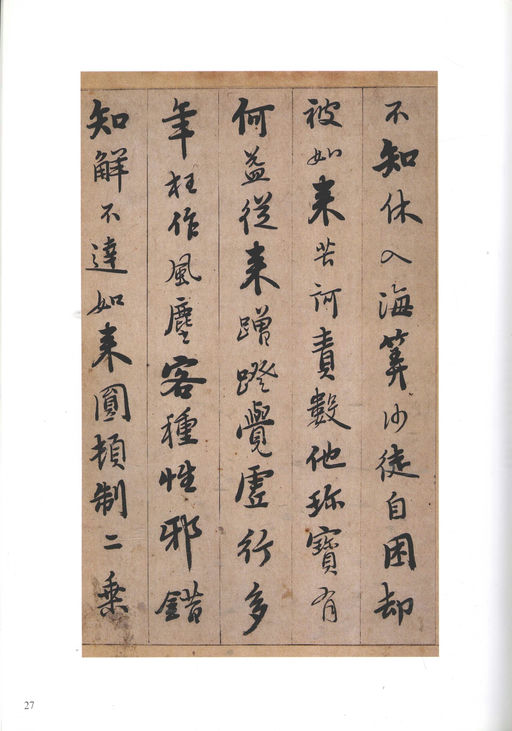 不知休入海筭沙徒自困却
被如来苦訶責數他珎寶有
何益從来蹭蹬覺虛行多
年枉作風塵客種性邪錯
知解不達如来圓頓制二乘
27